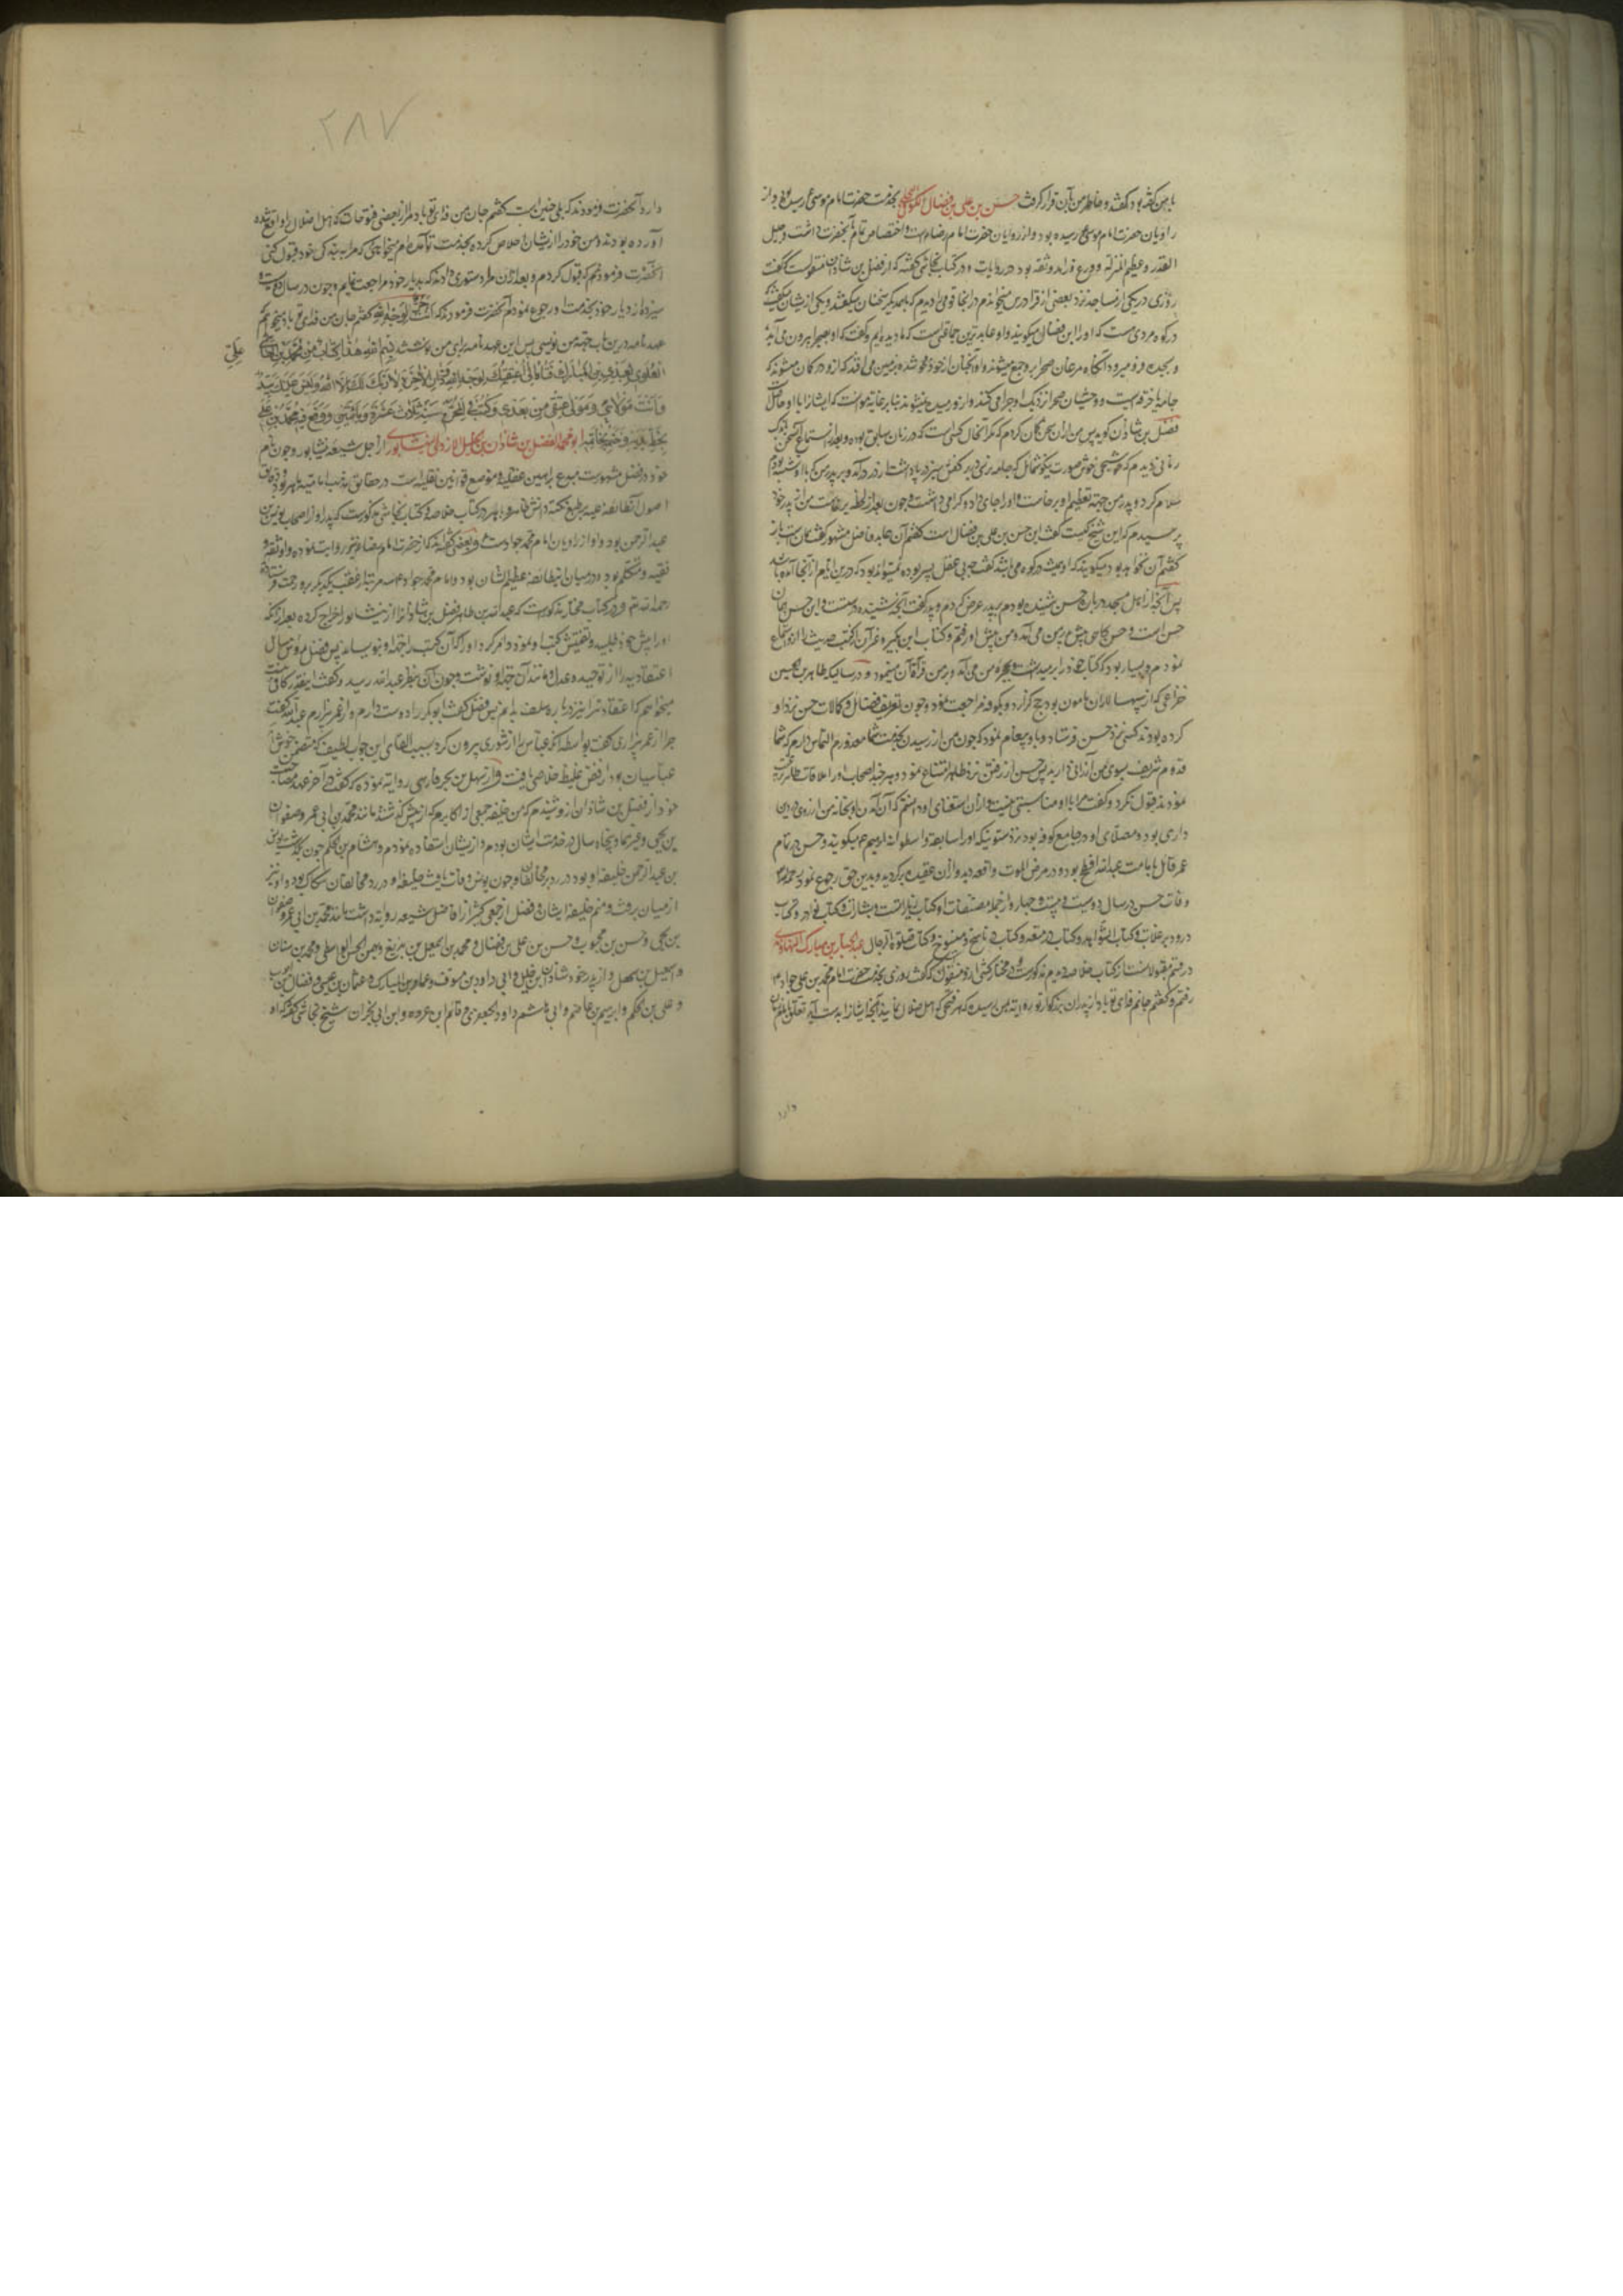 با من گفته بود گفتند و خاطر من بآن قرار گرفت حسن بن علی بن فضال الکوفی بخدمت حضرت امام موسی ع رسیده بود و از
راویان حضرت امام موسی رسیده بود و از راویان حضرت امام رضاست و اختصاص تمام بآنحضرت داشت و جلیل
القدر و عظیم المنزله و ورع و زاهد و ثقه بود در روایات و در کتاب نجاشی گفته که از فضل بن شاذان منقولست که گفت
روزی در یکی از مساجد نزد بعضی از قرا درس میخواندم در انجا قومی را دیدم که با همدیگر سخنان میگفتند و یکی از ایشان میگفت که
در کوه مردی هست که او را ابن فضال میگویند و او عابدترین جماعتی است که ما دیده‌ایم و گفت که او بصحرا بیرون می‌آید
و بسجده فرو میرود آنگاه مرغان صحرا برو جمع میشوند و او آنچنان از خود محو شده بزمین می افتد که از دور گمان میشود که
جامه یا خرقه است و وحشیان صحرا نزدیک او چرا می کنند و ازو رمیده نمیشوند بنابر غایة موانست که ایشانرا با او حاصل
فضل بن شاذان گوید پس من از آن سخن گمان کردم که مگر آن حال کسی است که در زمان سابق بوده و بعد از استماع آن سخن
زمانی دیدم که شیخی خوش صورت نیکو شمایل که جامه نرسی در بر و کفش سبز در پا داشت از در درآمد و بر پدرم که با او نشسته بودم
سلام کرد و پدر من جهة تعظیم او برخاست و او را جای داد و گرامی داشت و چون بعد از لحظه برخاست من از پدر خود
پرسیدم که این شیخ کیست گفت این حسن بن علی بن فضال است گفتم آن عابد فاضل مشهور گفت همان است باز
گفتم آن نخواهد بود میگویند که او همیشه در کوه می باشد گفت چه بی عقل پسر بوده نمیتواند بود که درین ایام از آنجا آمده باشد
پس آنچه از اهل مسجد در باب حسن شنیده بودم بپدر عرض کردم و پدر گفت آنچه شنیده درست است و این حسن همان
حسن است و حسن گاهی پیش پدر من می آمد و من پیش او رفتم و کتاب ابن بکیر و غیر آن از کتب حدیث را ازو استماع
نمودم و بسیار بود که کتاب خود را برمیداشت و بحجره من می آمد و بر من قرأة آن مینمود و در سالیکه طاهر بن حسین
خزاعی که از سپهسالاران مامون بود حج گزارد و بکوفه مراجعت نمود و چون تعریف فضائل و کمالات حسن نزد او
کرده بودند کسی نزد حسن فرستاد و باو پیغام نمود که چون من از رسیدن بخدمت شما معذورم التماس دارم که شما
قدوم شریف بسوی من ارزانی دارید پس حسن از رفتن نزد طاهر امتناع نمود و هر چند اصحاب او را بملاقات طاهر ترغیب
نمودند قبول نکرد و گفت مرا با او مناسبتی نیست و از آن استغنای او دانستم که آن آمدن او بخانه من از روی دین
داری بود و مصلای او در جامع کوفه بود نزد ستونیکه او را سابعه و اسطوانه ابرهیم ع میگویند و حسن در تمام
عمر قائل بامامت عبدالله افطح بود و در مرض الموت واقعه دید و از آن عقیده برگردید و بدین حق رجوع نمود رحمه الله
وفات حسن در سال دویست و بیست و چهار و از جمله مصنفات او کتاب زیارات و بشارات و کتاب نوادر و کتاب
در رد بر غلات و کتاب الشواهد و کتاب در متعه و کتاب در ناسخ و منسوخ و کتاب صلوة و الرجال عبدالجبار بن مبارک النهاوندی
در قسم مقبولانست از کتاب خلاصه و هم مذکور است و در مختار کشی ازو منقول که گفت روزی بخدمت حضرت امام محمد بن علی جواد ع
رفتم و گفتم جانم فدای تو باد از پدران بزرگوار تو روایت بمن رسیده که هر فتحی که اهل ضلال نمایند آنچه ایشانرا بدست آید تعلق بامام زمان
دارد
۲۸۷
دارد آنحضرت فرمودند که بلی چنین است گفتم جان من فدای تو باد مرا از بعضی فتوحات که اهل ضلال را واقع شده
آورده بودند و من خود را از ایشان خلاص کرده بخدمت تو آمده‌ام میخواهم که مرا به بندگی خود قبول کنی
آنحضرت فرمودند که قبول کردم و بعد از آن مرا دستوری دادند که بدیار خود مراجعت نمایم و چون در سال دویست و
سیزده از دیار خود بخدمت او رجوع نمودم آنحضرت فرمودند که انت حر لوجه الله گفتم جان من فدای تو باد میخواهم
عهدنامه درین باب جهة من نویسی پس این عهدنامه برای من نوشتند بسم الله هذا کتاب من محمد بن علی
علی
العلوی لعبدالله بن المبارک فتاه انی اعتقتک لوجه الله والدار الآخرة لا رب لک الا الله ولیس علیک سبیل
وانت مولای ومولی عقبی من بعدی وکتب فی المحرم سنة ثلاث عشرة ومأتین ووقع فیه محمد بن علی
بخط یده وختمه بخاتمه ابو محمد الفضل بن شاذان بن الخلیل الازدی النیشابوری از اجل شیعه نیشابور و چون نام
خود در فضل مشهورست مبدع براهین عقلیه و موضع قوانین نقلیه است در حقایق مذهب امامیه ماهر و در دقایق
اصول آن طائفه علیه بر طبق نکته دانش ظاهر و باهر در کتاب خلاصه و کتاب نجاشی مذکورست که پدر او از اصحاب یونس بن
عبدالرحمن بود و او از راویان امام محمد جوادست و بعضی گفته‌اند که از حضرت امام رضا ع نیز روایت نموده و او ثقه و
فقیه و متکلم بود و در میان این طائفه عظیم الشان بود و امام محمد جواد ع سه مرتبه از عقب یکدیگر برو رحمت فرستاده
رحمه الله تم و در کتاب مختار مذکورست که عبدالله بن طاهر فضل بن شاذانرا از نیشابور اخراج کرده بعد از آنکه
او را پیش خود طلبید و تفتیش کتب او نمود و امر کرد او را که آن کتب را جدا و نویسانید پس فضل رؤس مسائل
اعتقادیه را از توحید و عدل و مانند آن جهة او نوشت و چون آن بنظر عبدالله رسید گفت اینقدر کافی نیست
میخواهم که اعتقاد ترا نیز درباره سلف بدانم پس فضل گفت ابوبکر را دوست دارم و از عمر بیزارم عبدالله گفت
چرا از عمر بیزاری گفت بواسطه آنکه عباس را از شوری بیرون کرد بسبب القای این جواب لطیف که متضمن خوش آمد
عباسیان بود از فض غلیظ خلاصی یافت و از سهل بن بحر فارسی روایت نموده که گفت در آخر عهد مصاحبت
خود از فضل بن شاذان ازو شنیدم که من خلیفه جمعی از اکابرم که از پیش گذشتند مانند محمد بن ابی عمیر و صفوان
بن یحیی و غیرهما و پنجاه سال در خدمت ایشان بودم و از ایشان استفاده نمودم و هشام بن الحکم چون گذشت یونس
بن عبدالرحمن خلیفه او بود در رد بر مخالفان و چون یونس وفات یافت خلیفه او در رد مخالفان سکاک بود و او نیز
از میان برفت و منم خلیفه ایشان و فضل از جمعی کثیر از افاضل شیعه روایت داشت مانند محمد بن ابی عمیر و صفوان
بن یحیی و حسن بن محبوب و حسن بن علی بن فضال و محمد بن اسمعیل بن بزیع و محمد بن الحسن الواسطی و محمد بن سنان
و اسمعیل بن سهل و از پدر خود شاذان بن خلیل و ابی داود بن مسترق و عمار بن المبارک و عثمان بن عیسی و فضالة بن ایوب
و علی بن الحکم و ابرهیم بن عاصم و ابی هاشم داود الجعفری و قاسم بن عروه و ابن ابی نجران شیخ نجاشی گفته که او